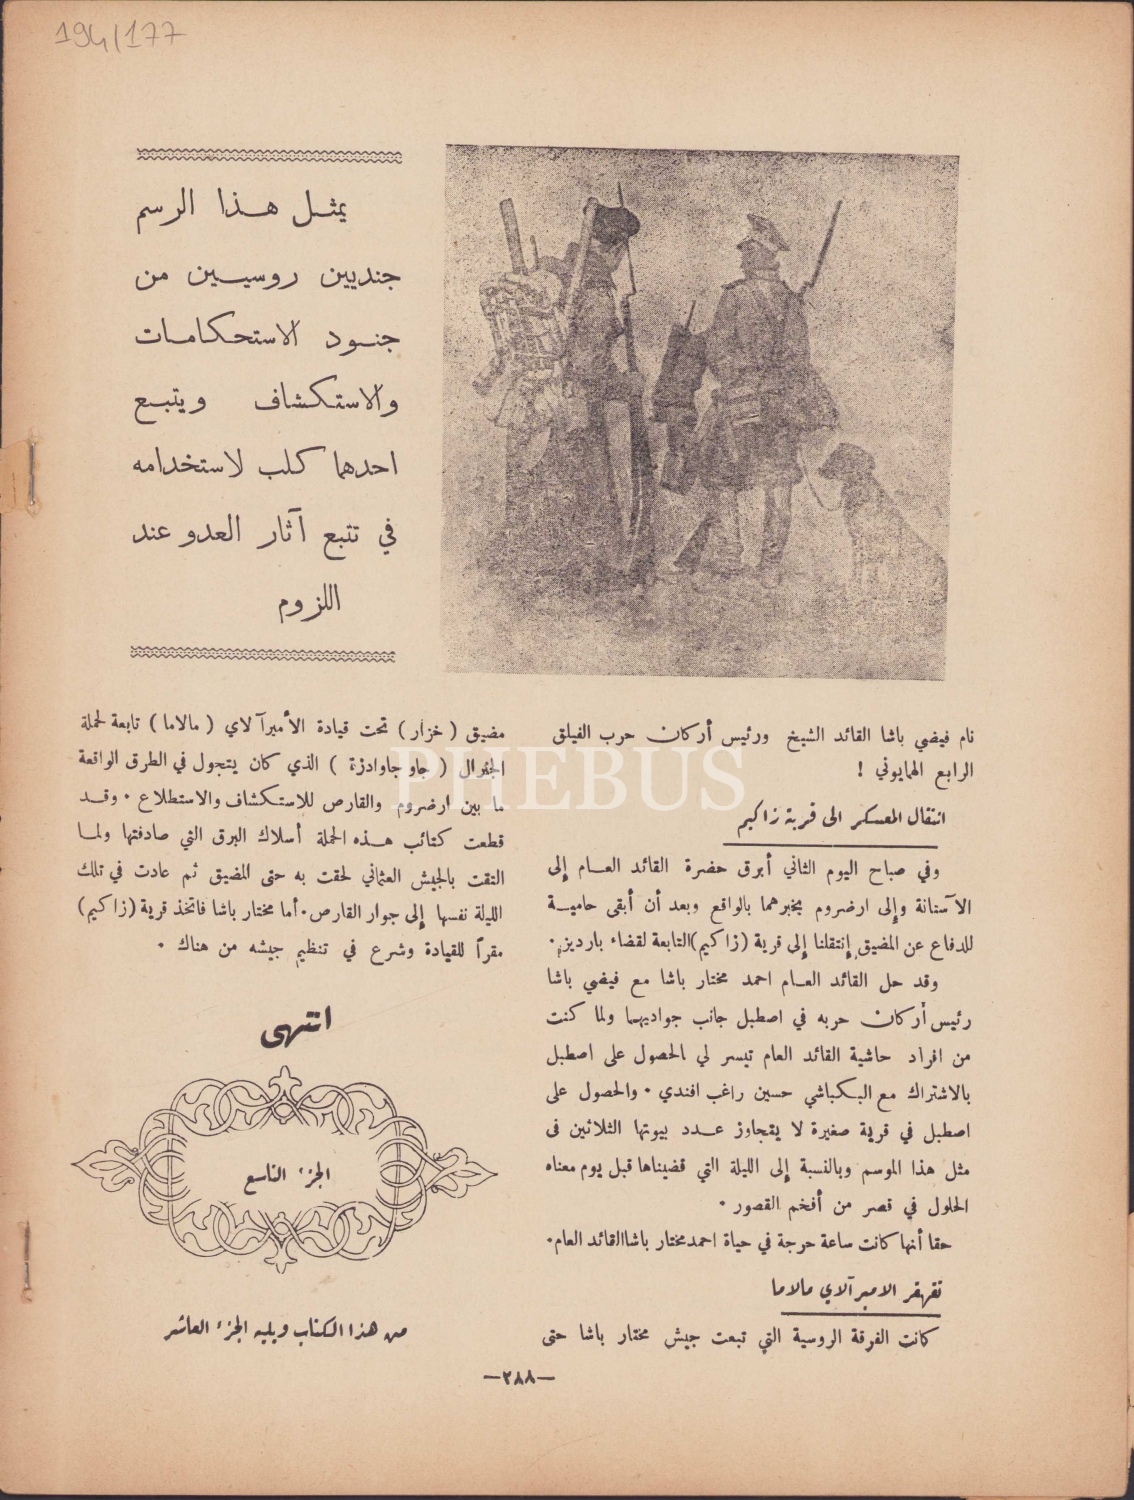 194/177
يمثل هذا الرسم
جنديين روسيين من
جنود الاستحكامات
والاستكشاف ويتبع
احدهما كلب لاستخدامه
في تتبع آثار العدو عند
اللزوم
نام فيضي باشا القائد الشيخ ورئيس أركان حرب الفيلق
الرابع الهمايوني !
انتقال المعسكر الى قرية زاكيم
وفي صباح اليوم الثاني أبرق حضرة القائد العام إلى
الآستانة وإلى ارضروم يخبرهما بالواقع وبعد أن أبقى حامية
للدفاع عن المضيق إنتقلنا إلى قرية (زاكيم) التابعة لقضاء بارديز.
وقد حل القائد العام احمد مختار باشا مع فيضي باشا
رئيس أركان حربه في اصطبل جانب جواديهما ولما كنت
من افراد حاشية القائد العام تيسر لي الحصول على اصطبل
بالاشتراك مع البكباشي حسين راغب افندي . والحصول على
اصطبل في قرية صغيرة لا يتجاوز عدد بيوتها الثلاثين فى
مثل هذا الموسم وبالنسبة إلى الليلة التي قضيناها قبل يوم معناه
الحلول في قصر من أفخم القصور .
حقا أنها كانت ساعة حرجة في حياة احمد مختار باشا القائد العام.
تقهقر الاميرآلاي مالاما
كانت الفرقة الروسية التي تبعت جيش مختار باشا حتى
مضيق ( خزار ) تحت قيادة الأميرآلاي ( مالاما ) تابعة لحملة
الجنرال ( جاوجاوادزة ) الذي كان يتجول في الطرق الواقعة
ما بين ارضروم والقارص للاستكشاف والاستطلاع . وقد
قطعت كتائب هذه الحملة أسلاك البرق التي صادفتها ولما
التقت بالجيش العثماني لحقت به حتى المضيق ثم عادت في تلك
الليلة نفسها إلى جوار القارص. أما مختار باشا فاتخذ قرية (زاكيم)
مقراً للقيادة وشرع في تنظيم جيشه من هناك .
انتهى
الجزء التاسع
من هذا الكتاب ويليه الجزء العاشر
—٢٨٨—
PHEBUS